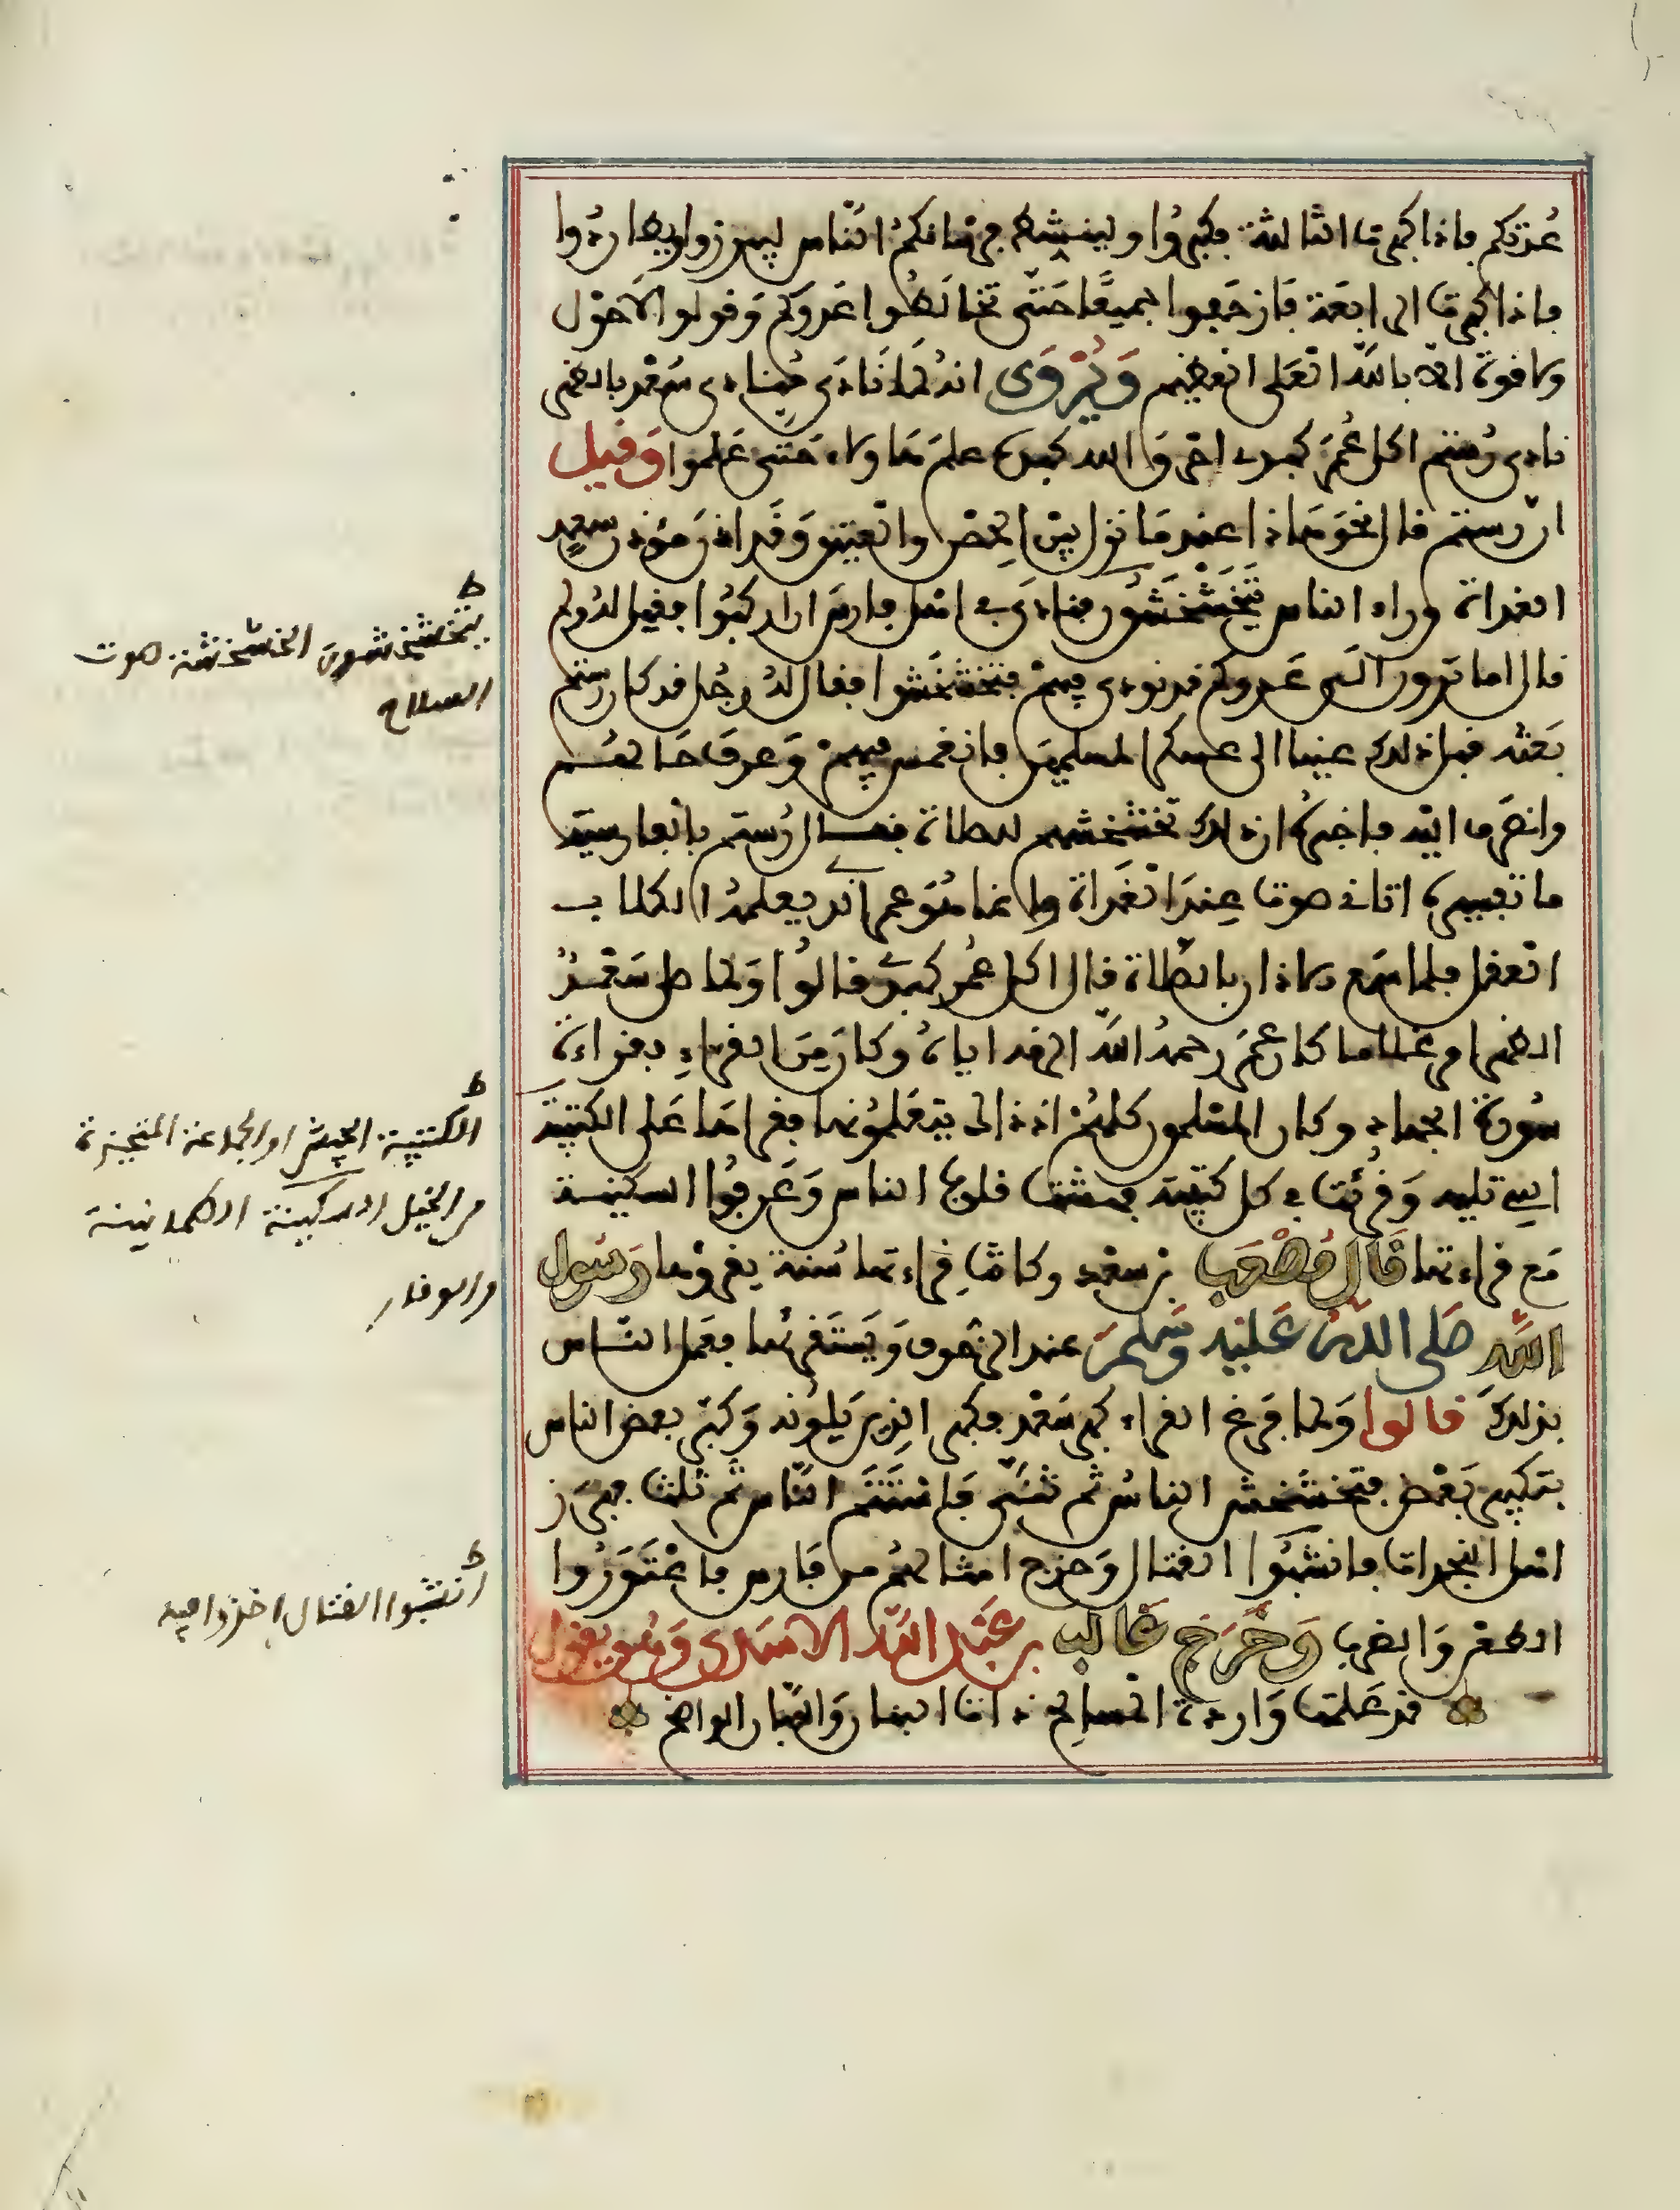 عُدّتكم فإذا كبرت الثالثة فكبروا ولينشط فرسانكم الناس ليبرزوا ويطاردوا
فإذا كبرت الرابعة فازحفوا جميعًا حتى تخالطوا عدوكم وقولوا لا حول
ولا قوة إلا بالله العلي العظيم وَيُرْوَى أنه لما نادى منادي سعد بالظهر
نادى رستم أكل عمر كبدي أحرق الله كبده علم هاولاء حتى علموا وَقيل
ان رستم قال نحو هاذا عندما نزل بين الحصن والعتيق وقد أذن مؤذن سعد
الغداة وراء الناس يتخشخشون فنادى في أهل فارس ان اركبوا فقيل له ولم
قال أما ترون الى عدوكم قد نودي فيهم فتخشخشوا فقال له رجل قد كان رستم
بعثه قبل ذلك عينا الى عسكر المسلمين فانغمس فيهم وعرف حالهم
وانصرف اليه فأخبره ان ذلك تخشخشهم للصلاة فقال رستم بالفارسية
ما تفسيره اتاني صوت عند الغداة وإنما هو عمر الذي يعلم الكلاب
العقل فلما سمع الاذان بالصلاة قال اكل عمر كبدي قالوا ولما صلى سعد
الظهر امر غلاما كان عمر رحمه الله الزمه اياه وكان من القراء بقراءة
سورة الجهاد وكان المسلمون كلهم اذ ذاك يتعلمونها فقراها على الكتيبة
التي تليه وقرئت في كل كتيبة فهشت قلوب الناس وعرفوا السكينة
مع قراءتها قال مُصْعَب بن سعد وكانت قراءتها سنة يقرؤها رَسُول
الله صلى الله عليه وسلم عند الزحوف ويستقرئها فعمل الناس
بذلك قالوا ولما فرغ القراء كبر سعد فكبر الذين يلونه وكبر بعض الناس
بتكبير بعض فتخشخش الناس ثم ثنى فاستتم الناس ثم ثلث فبرز
اهل النجدات فأنشبوا القتال وخرج امثالهم من فارس فاعتوروا
الطعن والضرب وخرج غالب بن عبد الله الاسدي وهو يقول
قد علمت واردة المسالح ذات البنان واللبان الواضح
ط
يتخشخشون الخشخشة صوت
السلاح
ط
الكتيبة الجيش او الجماعة المتحيزة
من الخيل السكينة الطمانينة
والوقار
ط
أنشبوا القتال اخذوا فيه